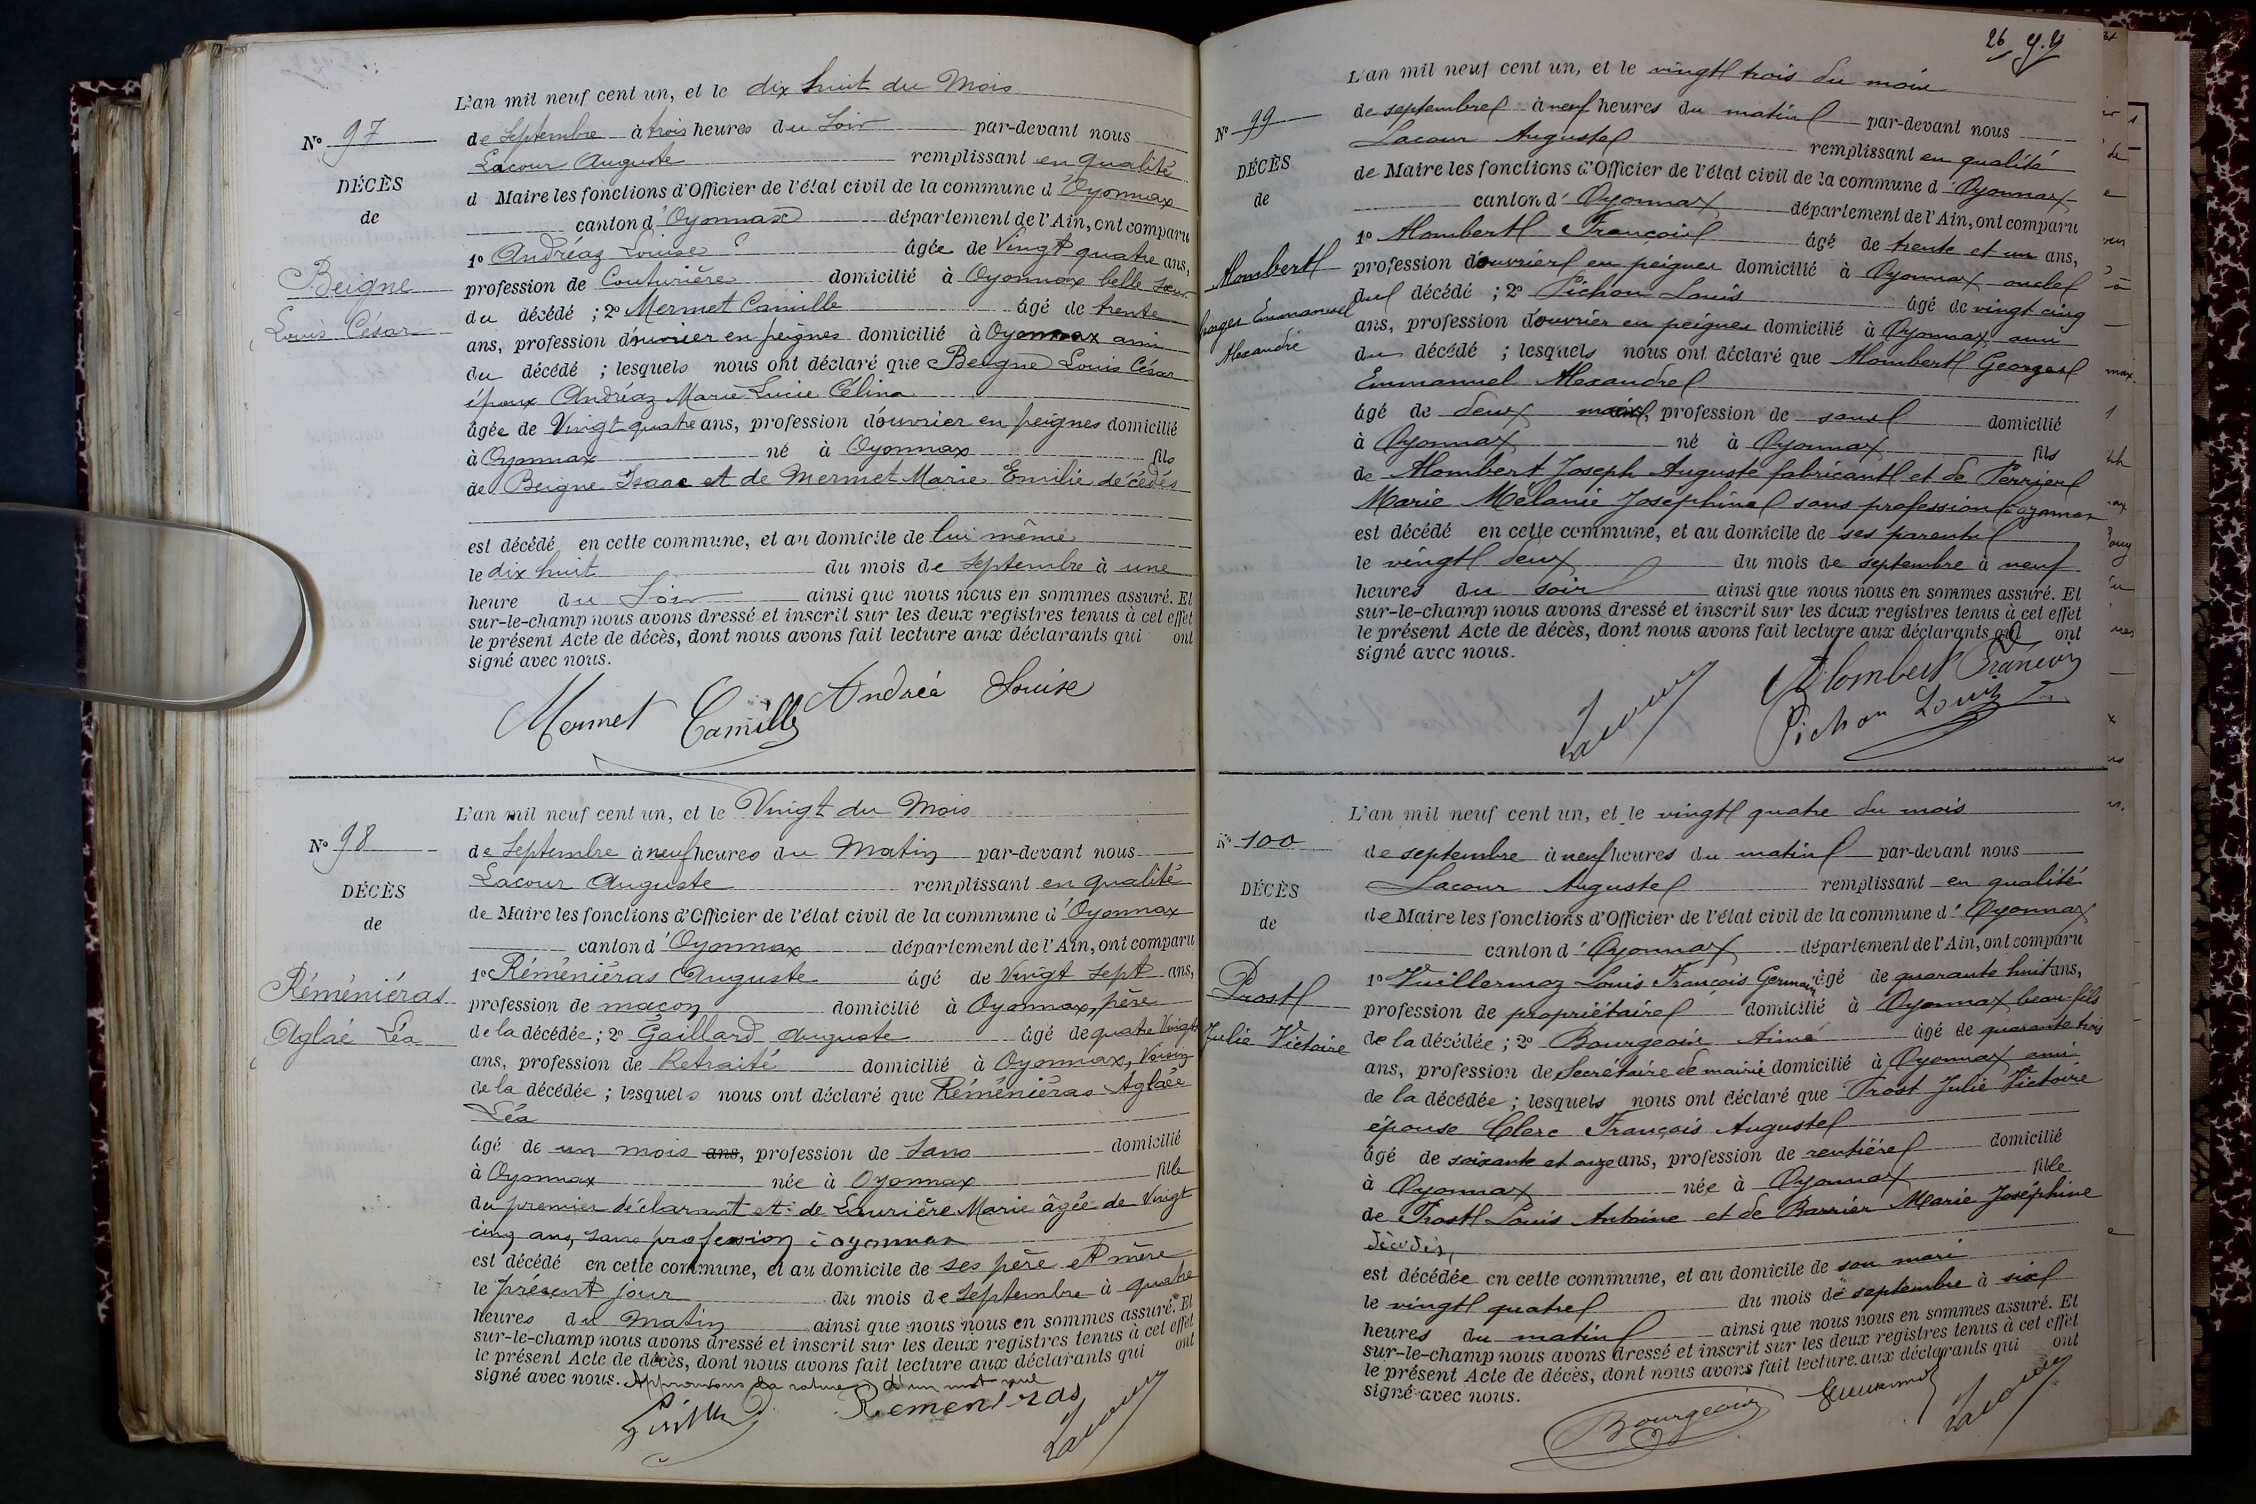 L'an mil neuf cent un, et le dix huit du Mois
N° 97
de Septembre à trois heures du Soir par-devant nous
Lacour Auguste remplissant en qualité
DÉCÈS
d Maire les fonctions d'Officier de l'état civil de la commune d'Oyonnax
de
canton d'Oyonnax département de l'Ain, ont comparu
1° Andréaz Louise âgée de Vingt quatre ans,
Beigne
profession de Couturière domicilié à Oyonnax belle sœur
Louis César
du décédé ; 2° Mermet Camille âgé de trente
ans, profession d'ouvrier en peignes domicilié à Oyonnax ami
du décédé ; lesquels nous ont déclaré que Beigne Louis César
époux Andréaz Marie Lucie Célina
âgée de Vingt quatre ans, profession d'ouvrier en peignes domicilié
à Oyonnax né à Oyonnax fils
de Beigne Isaac et de Mermet Marie Emilie décédés
est décédé en cette commune, et au domicile de lui même
le dix huit du mois de Septembre à une
heure du Soir ainsi que nous nous en sommes assuré. Et
sur-le-champ nous avons dressé et inscrit sur les deux registres tenus à cet effet
le présent Acte de décès, dont nous avons fait lecture aux déclarants qui ont
signé avec nous.
Mermet Camille Andréa Louise
L'an mil neuf cent un, et le Vingt du Mois
N° 98
de Septembre à neuf heures du Matin par-devant nous
Lacour Auguste remplissant en qualité
DÉCÈS
de Maire les fonctions d'Officier de l'état civil de la commune d'Oyonnax
de
canton d'Oyonnax département de l'Ain, ont comparu
1° Réméniéras Auguste âgé de Vingt sept ans,
Réméniéras
profession de maçon domicilié à Oyonnax, père
Aglaé Léa
de la décédée ; 2° Gaillard Auguste âgé de quatre Vingt
ans, profession de Retraité domicilié à Oyonnax, Voisin
de la décédée ; lesquels nous ont déclaré que Réméniéras Aglaée
Léa
âgé de un mois ans, profession de Sans domicilié
à Oyonnax née à Oyonnax fille
du premier déclarant et de Laurière Marie âgée de Vingt
cinq ans, sans profession à oyonnax
est décédé en cette commune, et au domicile de ses père et mère
le présent jour du mois de Septembre à quatre
heures du Matin ainsi que nous nous en sommes assuré. Et
sur-le-champ nous avons dressé et inscrit sur les deux registres tenus à cet effet
le présent Acte de décès, dont nous avons fait lecture aux déclarants qui ont
signé avec nous. Approuvons la rature d'un mot nul
Remeniras Lacour
26
L'an mil neuf cent un, et le vingt trois du mois
N° 99
de septembre à neuf heures du matin par-devant nous
Lacour Auguste remplissant en qualité
DÉCÈS
de Maire les fonctions d'Officier de l'état civil de la commune d'Oyonnax
de
canton d'Oyonnax département de l'Ain, ont comparu
1° Alombert François âgé de trente et un ans,
Alombert
profession d'ouvrier en peignes domicilié à Oyonnax oncle
Georges Emmanuel
du décédé ; 2° Pichon Louis âgé de vingt cinq
Alexandre
ans, profession d'ouvrier en peignes domicilié à Oyonnax ami
du décédé ; lesquels nous ont déclaré que Alombert Georges
Emmanuel Alexandre
âgé de deux mois, profession de sans domicilié
à Oyonnax né à Oyonnax fils
de Alombert Joseph Auguste fabricant et de Perrier
Marie Mélanie Joséphine sans profession à oyonnax
est décédé en cette commune, et au domicile de ses parents
le vingt deux du mois de septembre à neuf
heures du soir ainsi que nous nous en sommes assuré. Et
sur-le-champ nous avons dressé et inscrit sur les deux registres tenus à cet effet
le présent Acte de décès, dont nous avons fait lecture aux déclarants qui ont
signé avec nous.
Lacour Alombert François
Pichon Louis
L'an mil neuf cent un, et le vingt quatre du mois
N° 100
de septembre à neuf heures du matin par-devant nous
Lacour Auguste remplissant en qualité
DÉCÈS
de Maire les fonctions d'Officier de l'état civil de la commune d'Oyonnax
de
canton d'Oyonnax département de l'Ain, ont comparu
1° Vuillermoz Louis François Germain âgé de quarante huit ans,
Prost
profession de propriétaire domicilié à Oyonnax beau-fils
Julie Victoire
de la décédée ; 2° Bourgeois Aimé âgé de quarante trois
ans, profession de Secrétaire de mairie domicilié à Oyonnax ami
de la décédée ; lesquels nous ont déclaré que Prost Julie Victoire
épouse Clerc François Auguste
âgé de soixante et onze ans, profession de rentière domicilié
à Oyonnax née à Oyonnax fille
de Prost Louis Antoine et de Barrier Marie Joséphine
décédés,
est décédée en cette commune, et au domicile de son mari
le vingt quatre du mois de septembre à six
heures du matin ainsi que nous nous en sommes assuré. Et
sur-le-champ nous avons dressé et inscrit sur les deux registres tenus à cet effet
le présent Acte de décès, dont nous avons fait lecture aux déclarants qui ont
signé avec nous.
Bourgeois Lacour